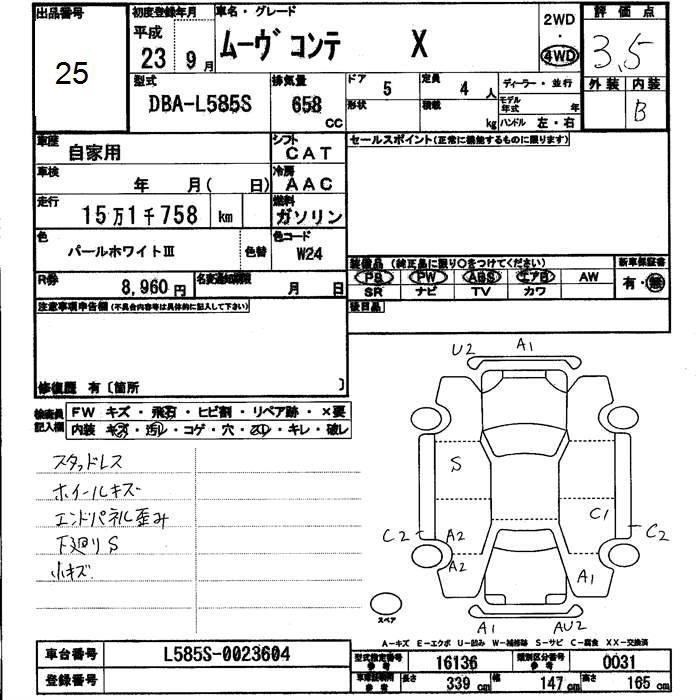 出品番号
25
初度登録年月
平成
23 9月
車名・グレード
ムーヴ コンテ X
2WD
・
4WD
評価点
3.5
型式
DBA-L585S
排気量
658
cc
ドア 5
定員 4 人
形状
積載 kg
ディーラー・並行
モデル年式 年
ハンドル 左・右
外装 内装
B
車歴
自家用
シフト
CAT
セールスポイント(正常に機能するものに限ります)
車検
年 月( 日)
冷房
AAC
走行
15万1千758 km
燃料
ガソリン
色
パールホワイトⅢ
色替
色コード
W24
装備品 (純正品に限り〇をつけてください)
新車保証書
PS PW ABS エアB AW
有・無
SR ナビ TV カワ
R券
8,960円
名変通知期限
月 日
後日品
注意事項申告欄(不具合内容等は具体的に記入して下さい)
修復歴 有〔箇所 〕
検査員記入欄
FW キズ・飛石・ヒビ割・リペア跡・×要
内装 キズ・汚レ・コゲ・穴・スレ・キレ・破レ
スタッドレス
ホイールキズ
エンドパネル歪み
下廻りS
小キズ
U2 A1
S
C1
C2 A2
C2
A2
A1
スペア
A1 AU2
A-キズ E-エクボ U-凹み W-補修跡 S-サビ C-腐食 XX-交換済
車台番号
L585S-0023604
登録番号
型式指定番号 参考
16136
類別区分番号 参考
0031
車車証明用 参考
長さ 339 cm
幅 147 cm
高さ 165 cm